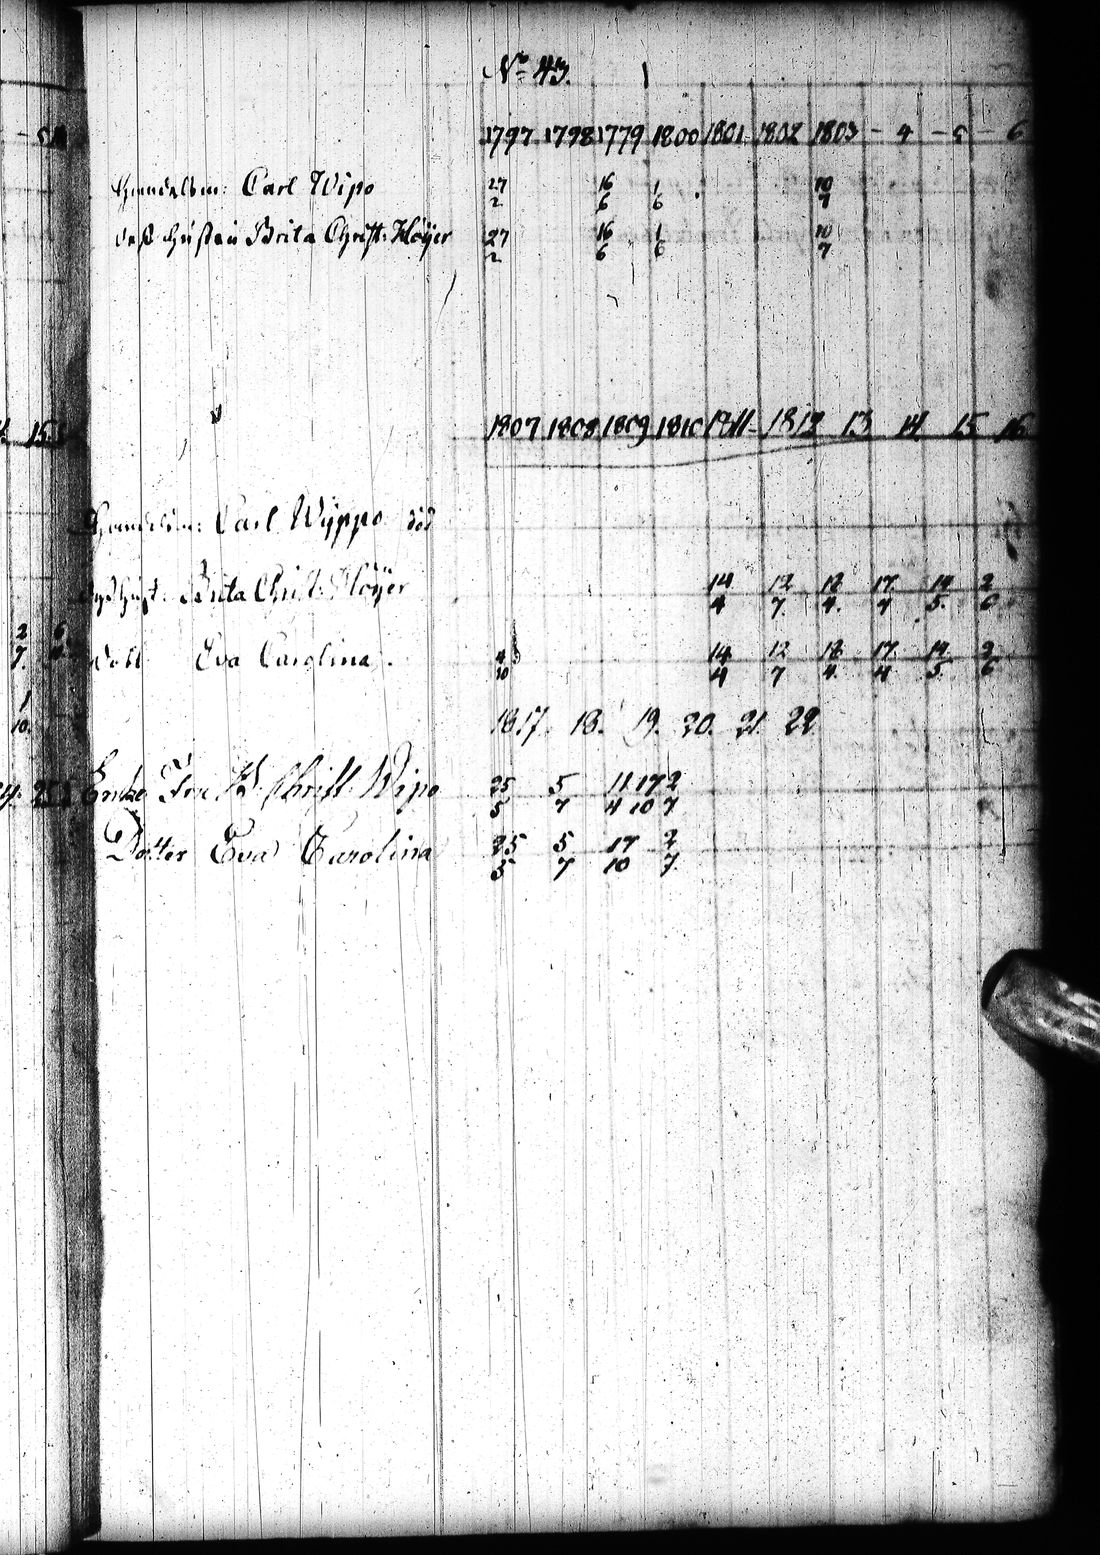 No 43.
1797 1798 1779 1800 1801 1802 1803 - 4 - 5 - 6
Handelsm: Carl Wipo 27/2 16/6 1/6 10/7
dess hustru Brita Christ: Höijer 27/2 16/6 1/6 10/7
1807 1808 1809 1810 1811 1812 13 14 15 16
Handelsm: Carl Wÿppo död
Brita Christ: Höijer 14/4 12/7. 18/4. 17/4 14/5. 2/6
Dott Eva Carolina. 4/10 14/4 12/7 18/4. 17/4 14/5. 2/6
1817. 18. 19. 20. 21. 22
Enke Fru B. Christ. Wipo 25/5 5/7 11/4 17/10 2/7
Dotter Eva Carolina 25/5 5/7 17/10 2/7.